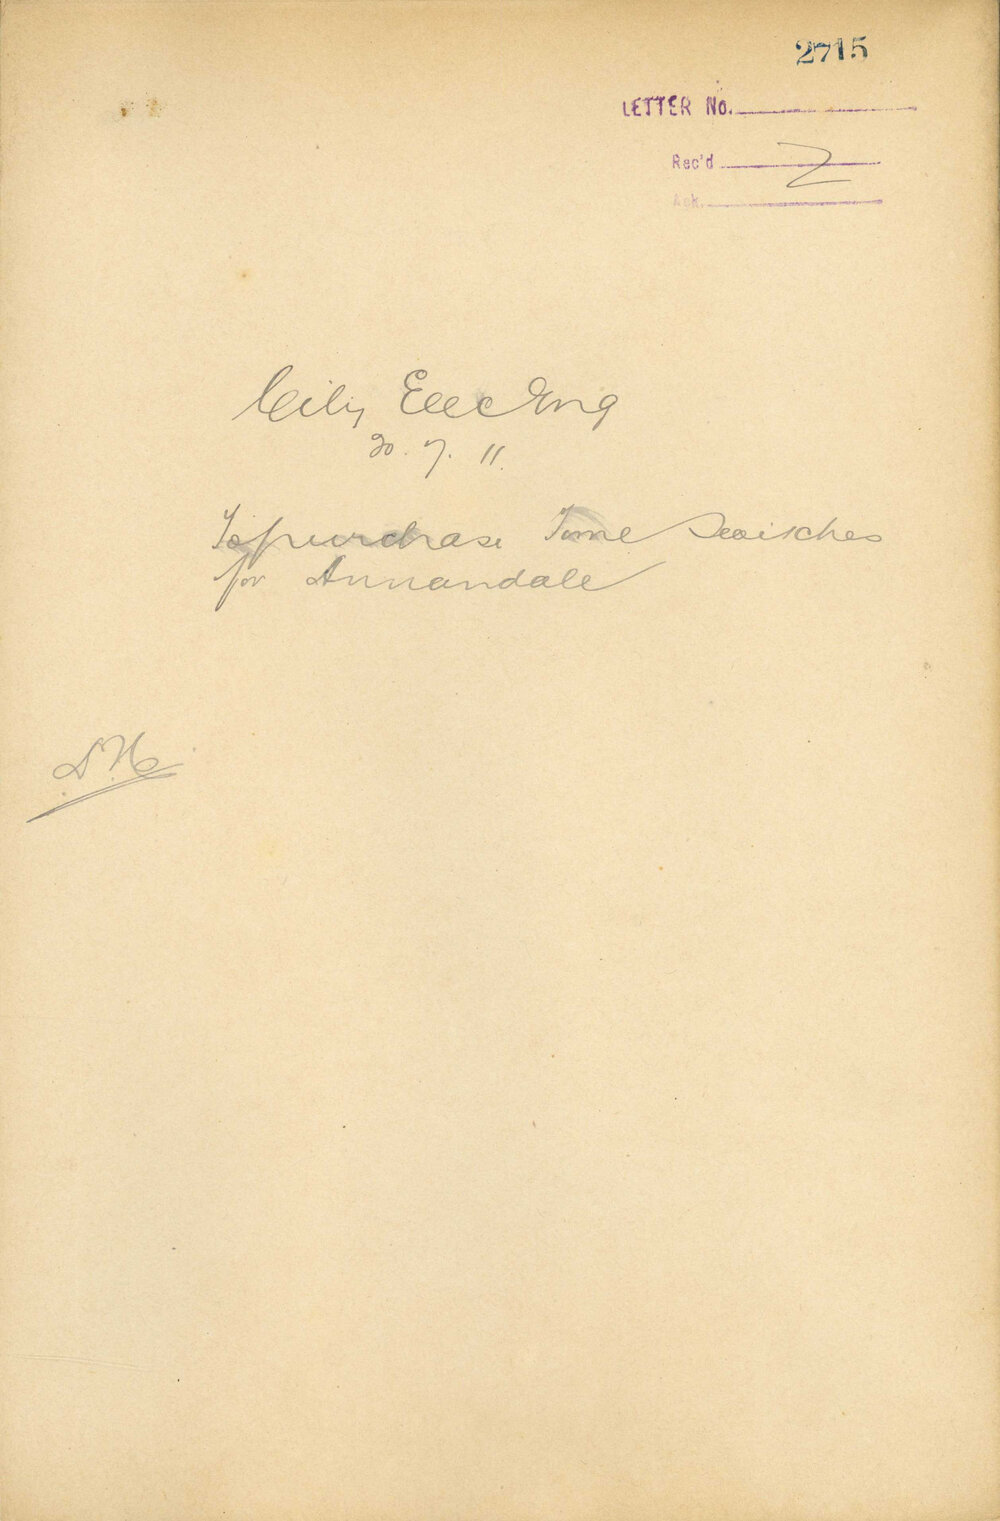 2715
LETTER No.
Rec'd
Ack.
City Elec Eng
20.7.11.
To purchase Time Switches
for Annandale